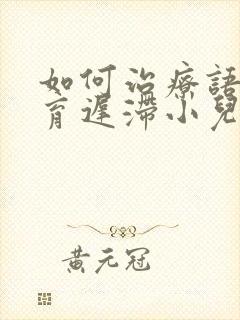 如何治療語
育遲滯小兒
黃元冠